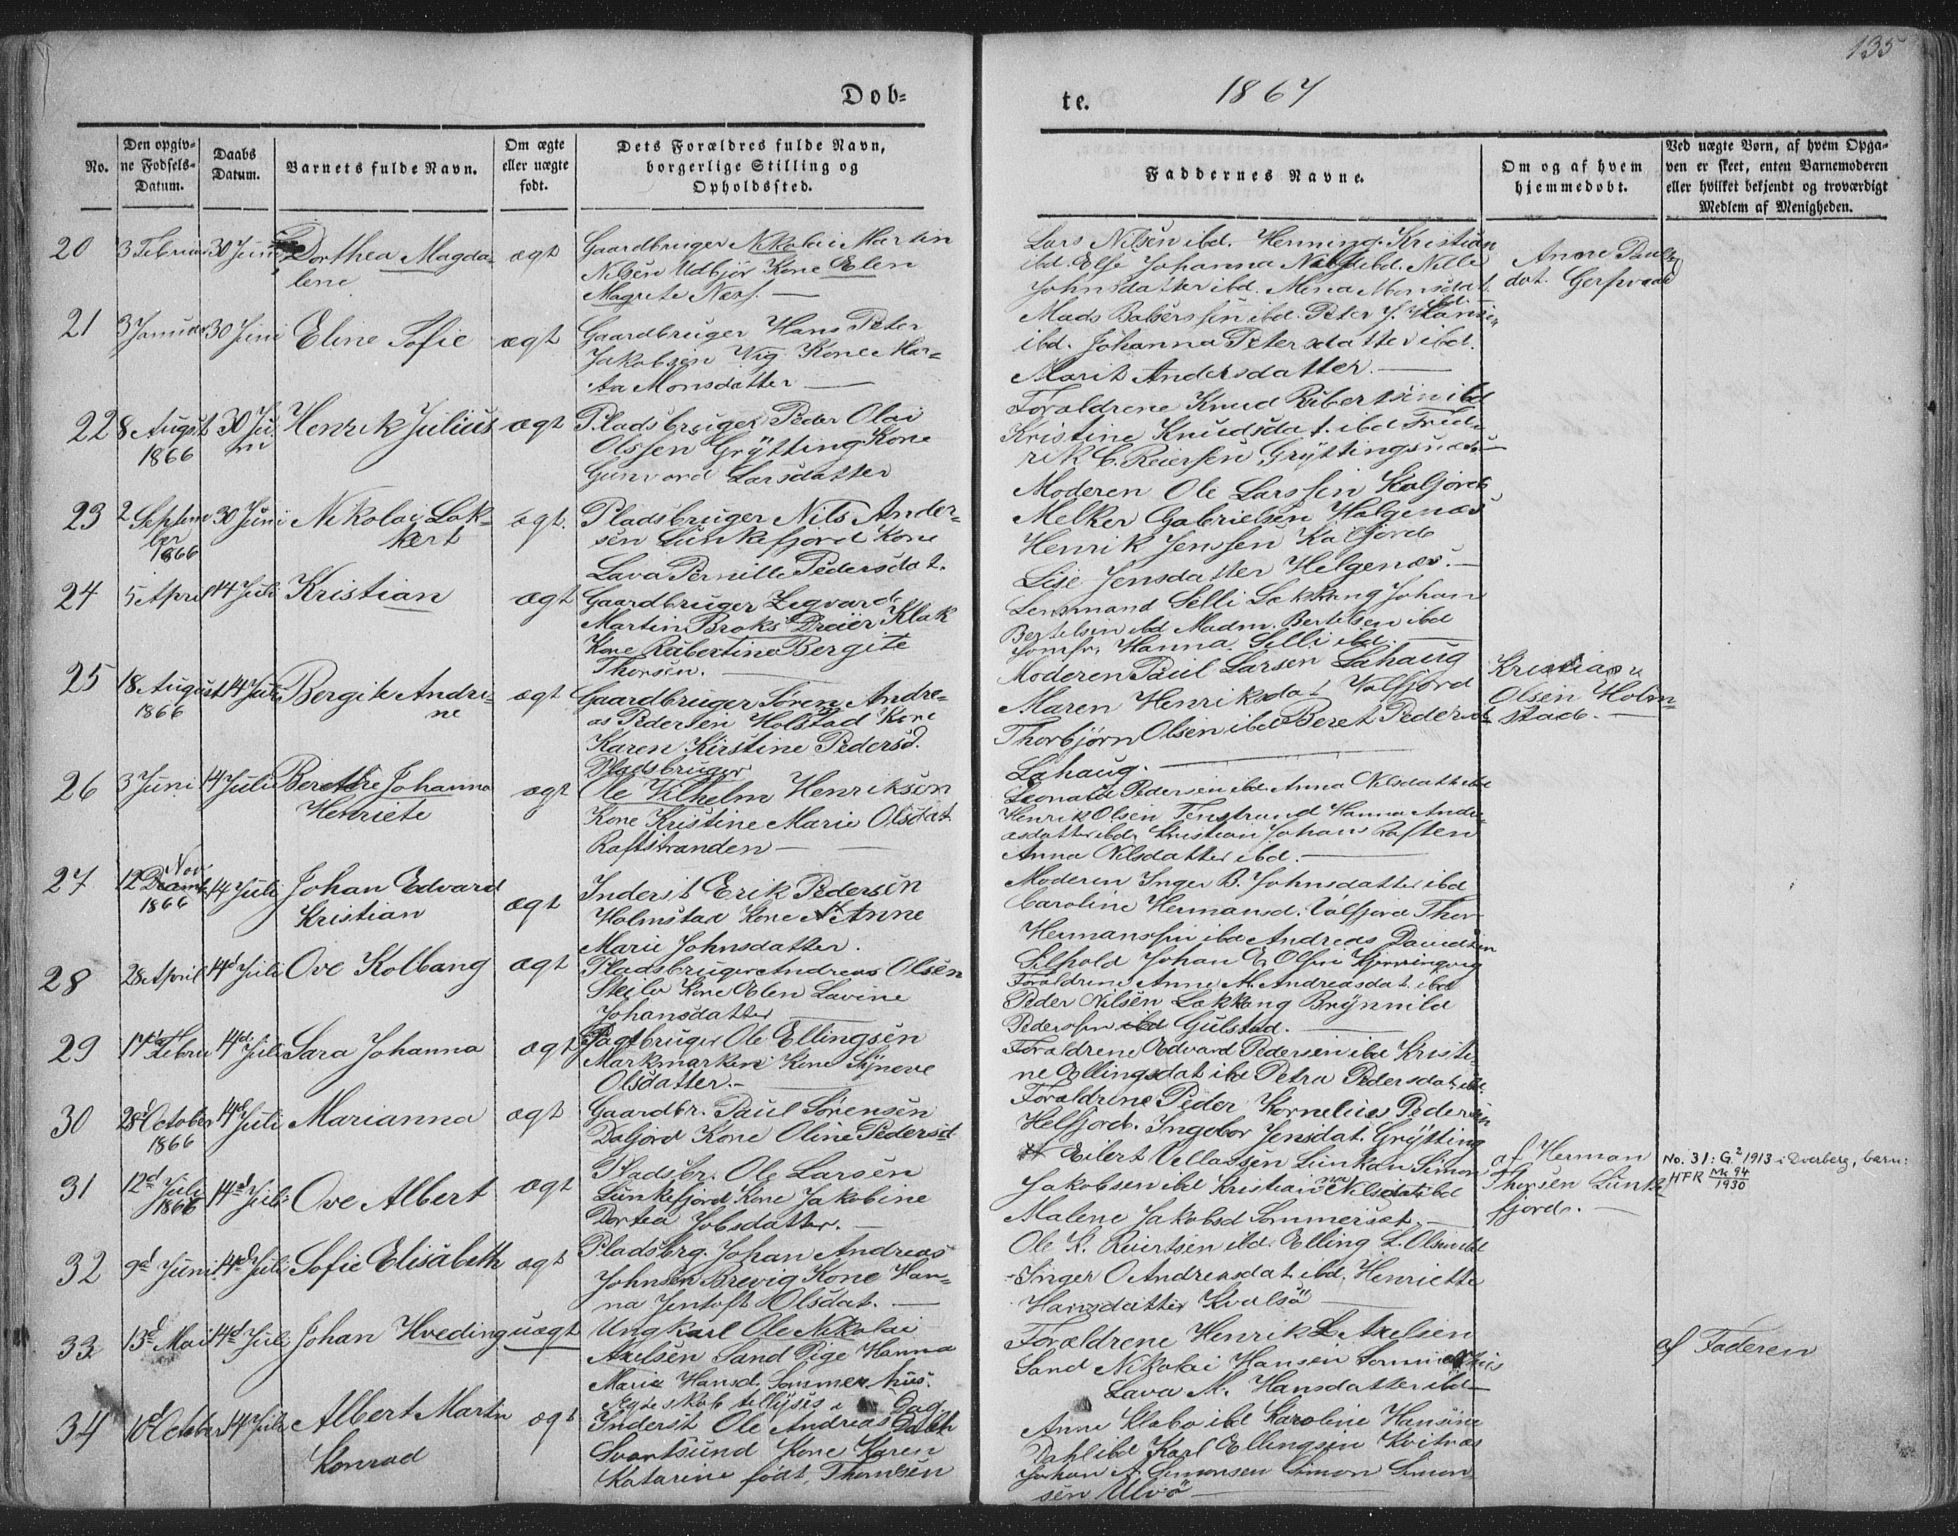 135
Døb=
te.
1867
No.
Den opgiv=
ne Fødsels=
Datum.
Daabs
Datum.
Barnets fulde Navn.
Om ægte
eller uægte
født.
Dets Forældres fulde Navn,
borgerlige Stilling og
Opholdssted.
Faddernes Navne.
Om og af hvem
hjemmedøbt.
Ved uægte Børn, af hvem Opga=
ven er skeet, enten Barnemoderen
eller hvilket bekjendt og troværdigt
Medlem af Menigheden.
20
3 Februar
30 Juni
Dorthea Magda-
lene
ægt
Gaardbruger Nikolai Martin
Nilsen Udbjør Kone Elen
Magrete Næss. —
Lars Nilsen ibd. Henning Kristian
ibd. Else Johanna Nilsd ibd. Nille
Johnsdatter ibd. Mina Monsdat.
Anne Pauls
dat.
21
3 Januar
30 Juni
Eline Sofie
ægt
Gaardbruger Hans Peter
Jakobsen Vig Kone Mar-
ta Monsdatter —
Mads Balsersen ibd. Peter J. Hansen
ibd. Johanna Petersdatter ibd.
Marit Andersdatter. —
22
8 August
1866
30 Ju-
ni
Henrik Julius
ægt
Pladsbruger Peder Olai
Olssen Grytting Kone
Gunvord Larsdatter
Forældrene Knud Ribertsen ibd
Kristine Knudsdat. ibd Fred-
rik C. Reiersen Gryttingsnæs
23
2 Septem
ber
1866
30 Juni
Nikolai Lok-
kert
ægt.
Pladsbruger Nils Ander-
sen Lunkefjord Kone
Lava Pernille Pedersdat.
Moderen Ole Larssen Kaljord
Melker Gabrielsen Helgenæs
Henrik Jenssen Kaljord
Lise Jensdatter Helgenæs. —
24
5 April
14 Juli
Kristian
ægt
Gaardbruger Segvard
Martin Broks Dreier Klak
Kone Rubertine Bergite
Thorsen. —
Lensmand Selli Lekkang Johan
Bertelsen ibd Madm. Bertelsen ibd
Jomfr. Hanna Selli ibd. —
25
18 August
1866
14 Juli
Bergite Andri-
ne
ægt
Gaardbruger Søren Andre-
as Pedersen Holstad Kone
Karen Kirstine Pedersd.
Moderen Paul Larsen Lahaug
Maren Henriksdat Valfjord
Thorbjørn Olsen ibd Beret Pedersd
Lahaug. —
Kristian
Olsen Holm-
stad. —
26
3 Juni
14 Juli
Berethe Johanna
Henriete
ægt
Pladsbruger
Ole Vilhelm Henriksen
Kone Kristine Marie Olsdat
Raftstranden —
Leonard Pedersen ibd Anna Nilsdat ibd
Henrik Olsen Tenstrand Hanna Andre-
asdatter ibd. Kristian Johans Raften
Anna Nilsdatter ibd. —
27
12 Nov
1866
14 Juli
Johan Edvard
Kristian
ægt
Inderst Erik Pedersen
Holmstad Kone Anne
Marie Johnsdatter.
Moderen Inger B. Johnsdatter ibd
Caroline Hermansd. Valfjord Thor
Hermanssen ibd Andreas Davidsen
28
28 April
14d Juli
Ove Kolbang
ægt
Pladsbruger Andreas Olsen
Steilo Kone Elen Lavine
Johansdatter —
Forældrene Anne M. Andreasdat ibd
Peder Nilsen Løkkang Brynnild
Pederssen ibd Gulstad. —
29
17d Febru
14d Juli
Sara Johanna
ægt
Ole Ellingsen
Markmarken Kone Syneve
Olsdatter. —
Forældrene Edvard Pedersen ibd Kristi-
ne Ellingsdat ibd Petra Pedersdat. ibd.
30
28d October
1866
14d Juli
Marianna
ægt
Gaardbr. Paul Sørensen
Daljord Kone Oline Pedersd
Forældrene Peder Kornelius Pedersen
Helfjord. Ingebor Jensdat. Grytting
31
12d
Juli
1866
14d Juli
Ove Albert
ægt
Pladsbr. Ole Larsen
Lunkefjord Kone Jakobine
Dortea Jobsdatter. —
Eilert Vellassen Lunkan Simon
Jakobsen ibd Kristianna Nilsdat ibd
Malene Jakobsd Sommerset. —
af Herman
Thorsen Lunke
fjord. —
No. 31: G² 1913 i Dverberg, barn:
HFR Mk 94
1930
32
9d Juni
14d Juli
Sofie Elisabeth
ægt
Pladsbrg. Johan Andreas
Johnsen Brevig Kone Han-
na Jentoft Olsdat. —
Ole K. Reiertsen ibd. Elling L. Olsen ibd
Inger O Andreasdat ibd, Henriette
Hansdatter Kvalsø —
33
13d Mai
14d Juli
Johan Hveding
uægt
Ungkarl Ole Nikolai
Axelsen Sand Pige Hanna
Marie Hansd. Sommerhus.
Ægteskab tillyses i Dag
Forældrene Henrik L Axelsen
Sand Nikolai Hansen Sommerhus
Lava M. Hansdatter ibd —
af Faderen
34
10d October
14 Juli
Albert Martin
Konrad
ægt
Inderst Ole Andreas Dahl
Svartsund Kone Karen
Katarine født Thomesen
Anne Klabo ibd Karoline Hansine
Dahl ibd Karl Ellingsen Kvitnæs
Johan A. Simonsen Simon Simon-
sen Ulvø —